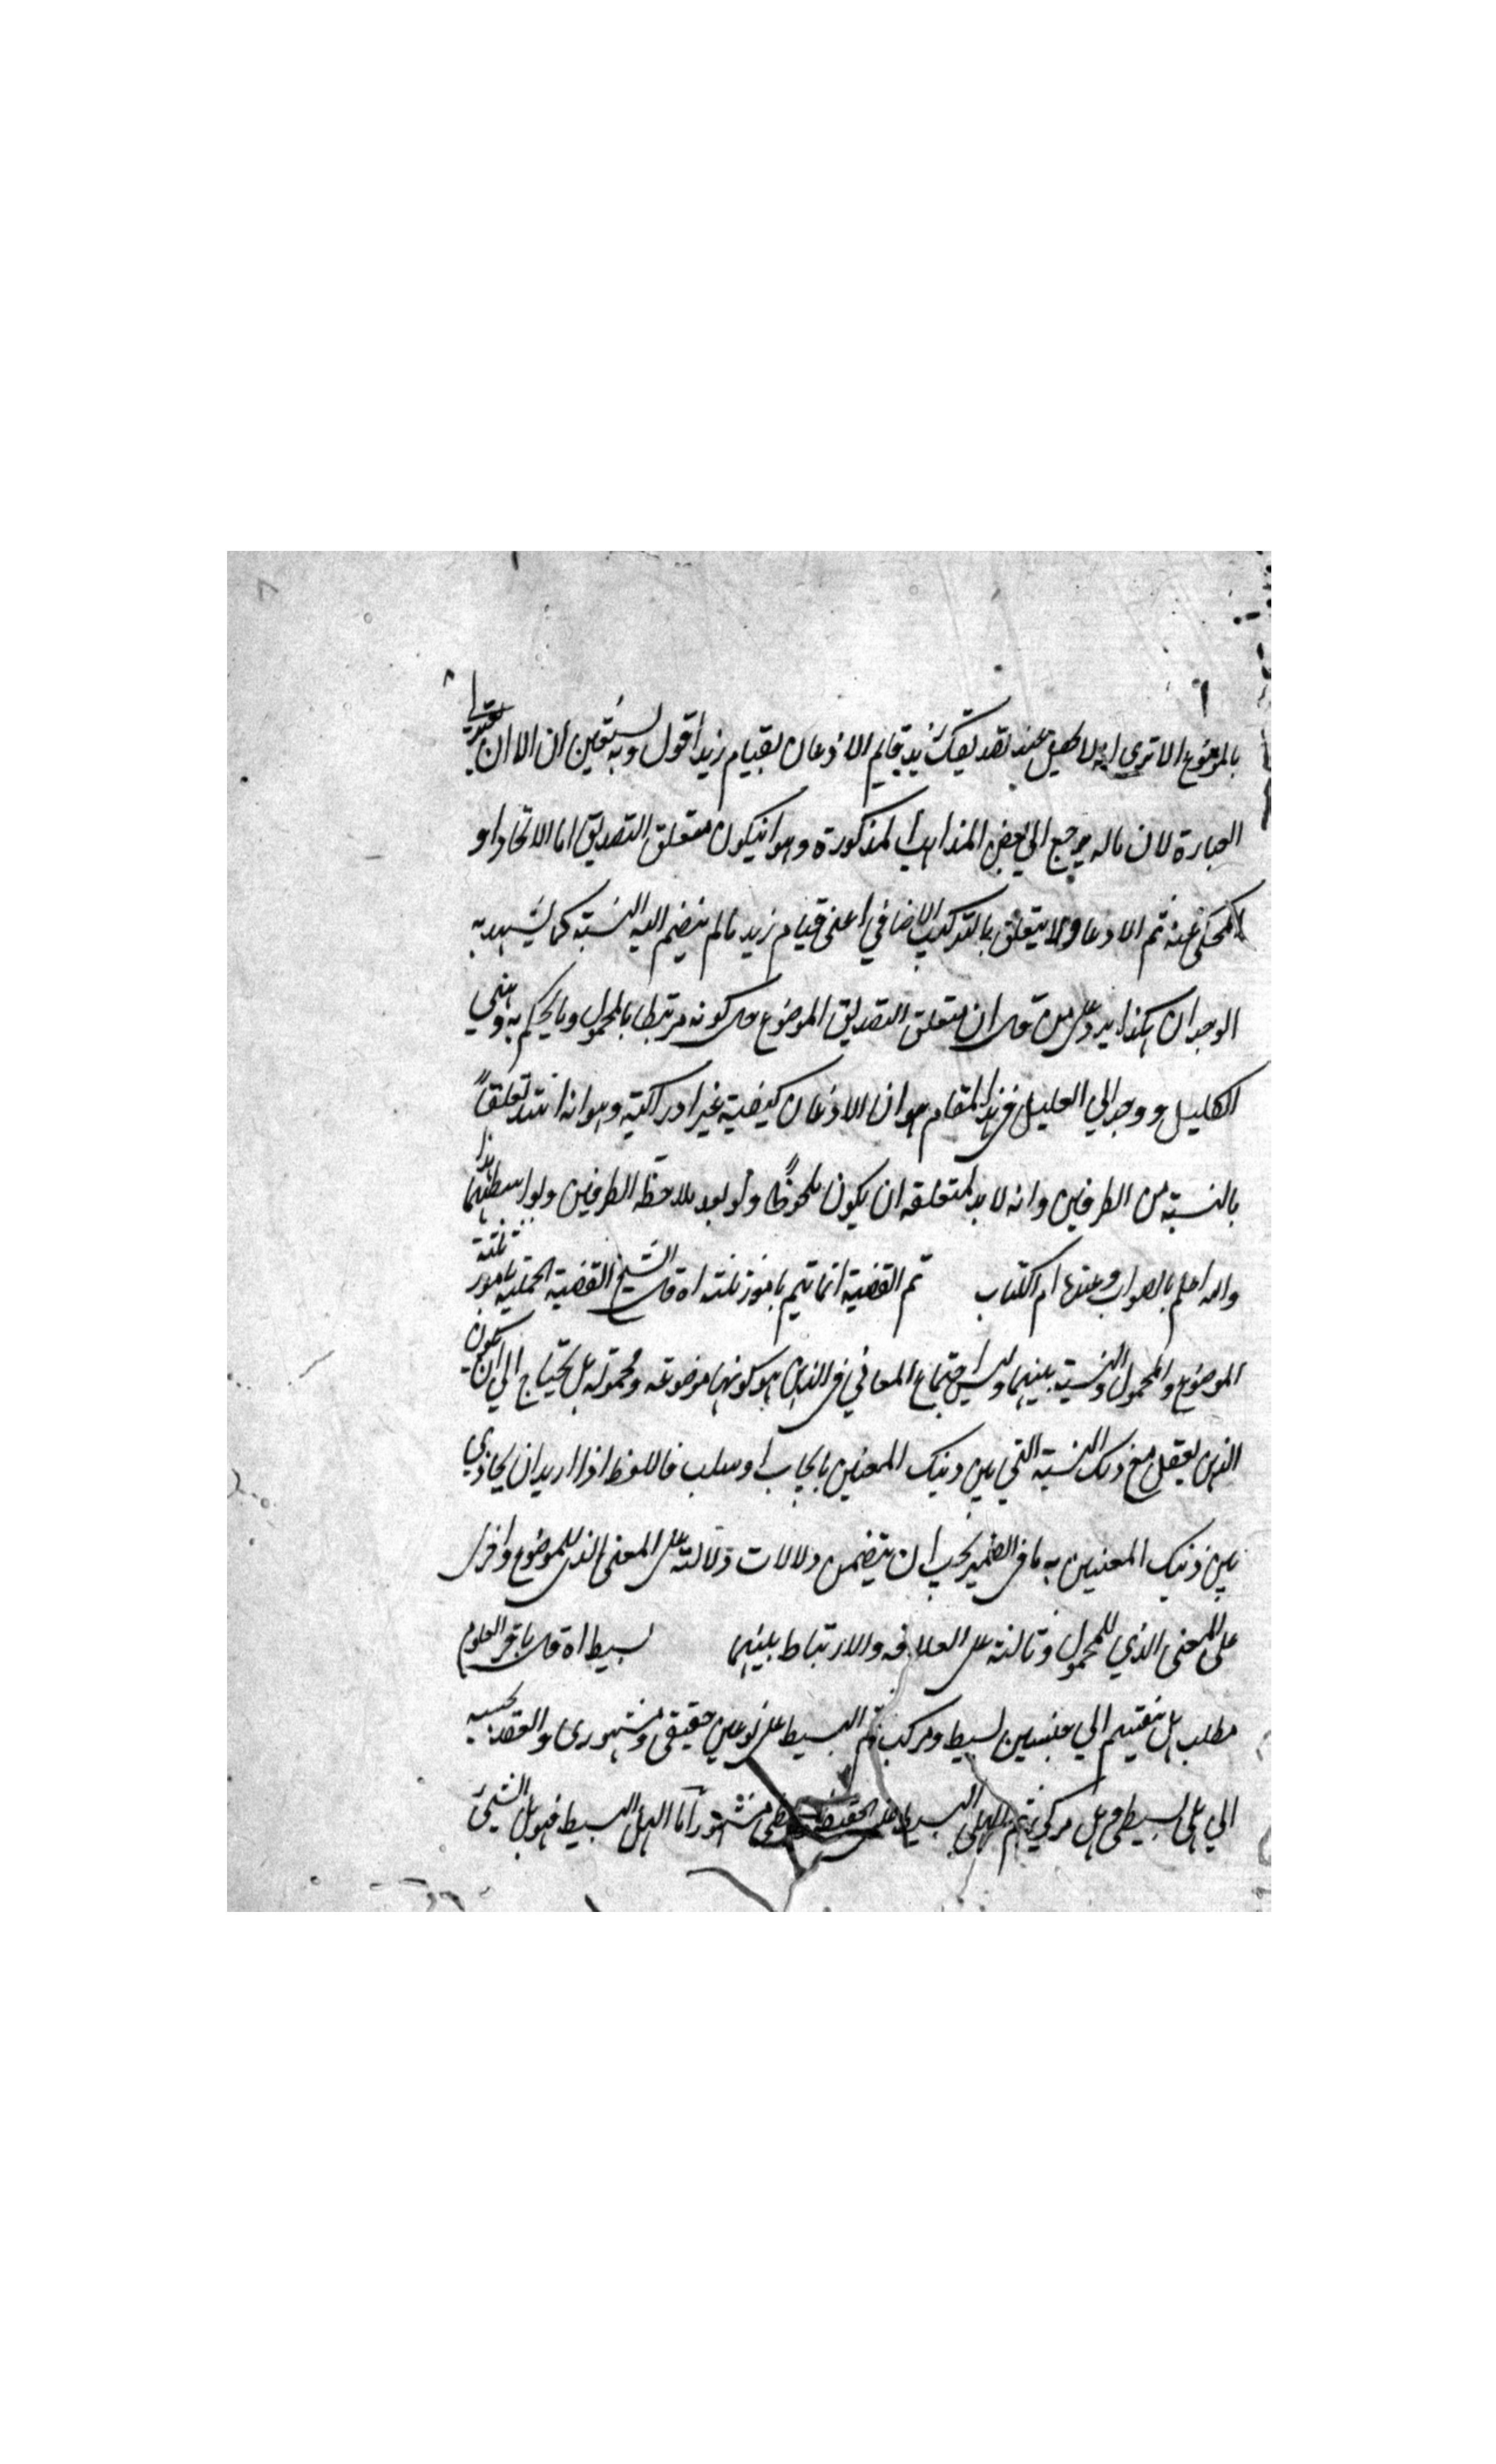 بالموضوع الا ترى انه لا يحصل عند تصديقك بزيد قايم الاذعان بقيام زيد اقول وبه يستيقن ان الا ان يتغير في
العبارة لان ماله يرجع الى بعض المذاهب المذكورة وهو انيكون متعلق التصديق اما الاتحاد او
المحكى عنه ثم الاذعان لا يتعلق بالتركيب الاضافي اعنى قيام زيد مالم ينضم اليه النسبة كما يشهد به
الوجدان هكذا يرد على من قال ان متعلق التصديق الموضوع حال كونه مرتبطا بالمحمول وما يحكم به ذهني
الكليل ووجدالي العليل في هذا المقام هو ان الاذعان كيفية غير ادراكية وهو انه اشتد تعلقاً
بالنسبة من الطرفين وانه لا بد لمتعلقه ان يكون ملحوظاً ولو بعد ملاحظة الطرفين وبواسطتهما هذا
والله اعلم بالصواب وعنده ام الكتاب ثم القضية انما تتم بامور ثلثة اه قال الشيخ القضية الحملية بامور ثلثة
الموضوع والمحمول والنسبة بينهما وليس اجتماع المعاني في الذهن هو كونها موضوعه ومحموله بل يحتاج الى ان يكون
الذهن يعقل مع ذلك النسبة التي بين ذينك المعنيين بايجاب او سلب فاللفظ اذا اريد ان يحاذي
بين ذينك المعنيين به ما في الضمير يجب ان يتضمن دلالات دلالة على المعنى الذي للموضوع واخرى
على المعنى الذي للمحمول وثالثة على العلاقه والارتباط بينهما بسيط اه قال باقر العلوم
مطلب هل ينقسم الي جنسين بسيط ومركب ثم البسيط على نوعين حقيقى ومشهورى والعقد بحسبه
الي هلي بسيطي وهل مركبي ثم الهلي البسيط على الحقيقي مشهور اما الهل البسيط فهو هل الشيئ